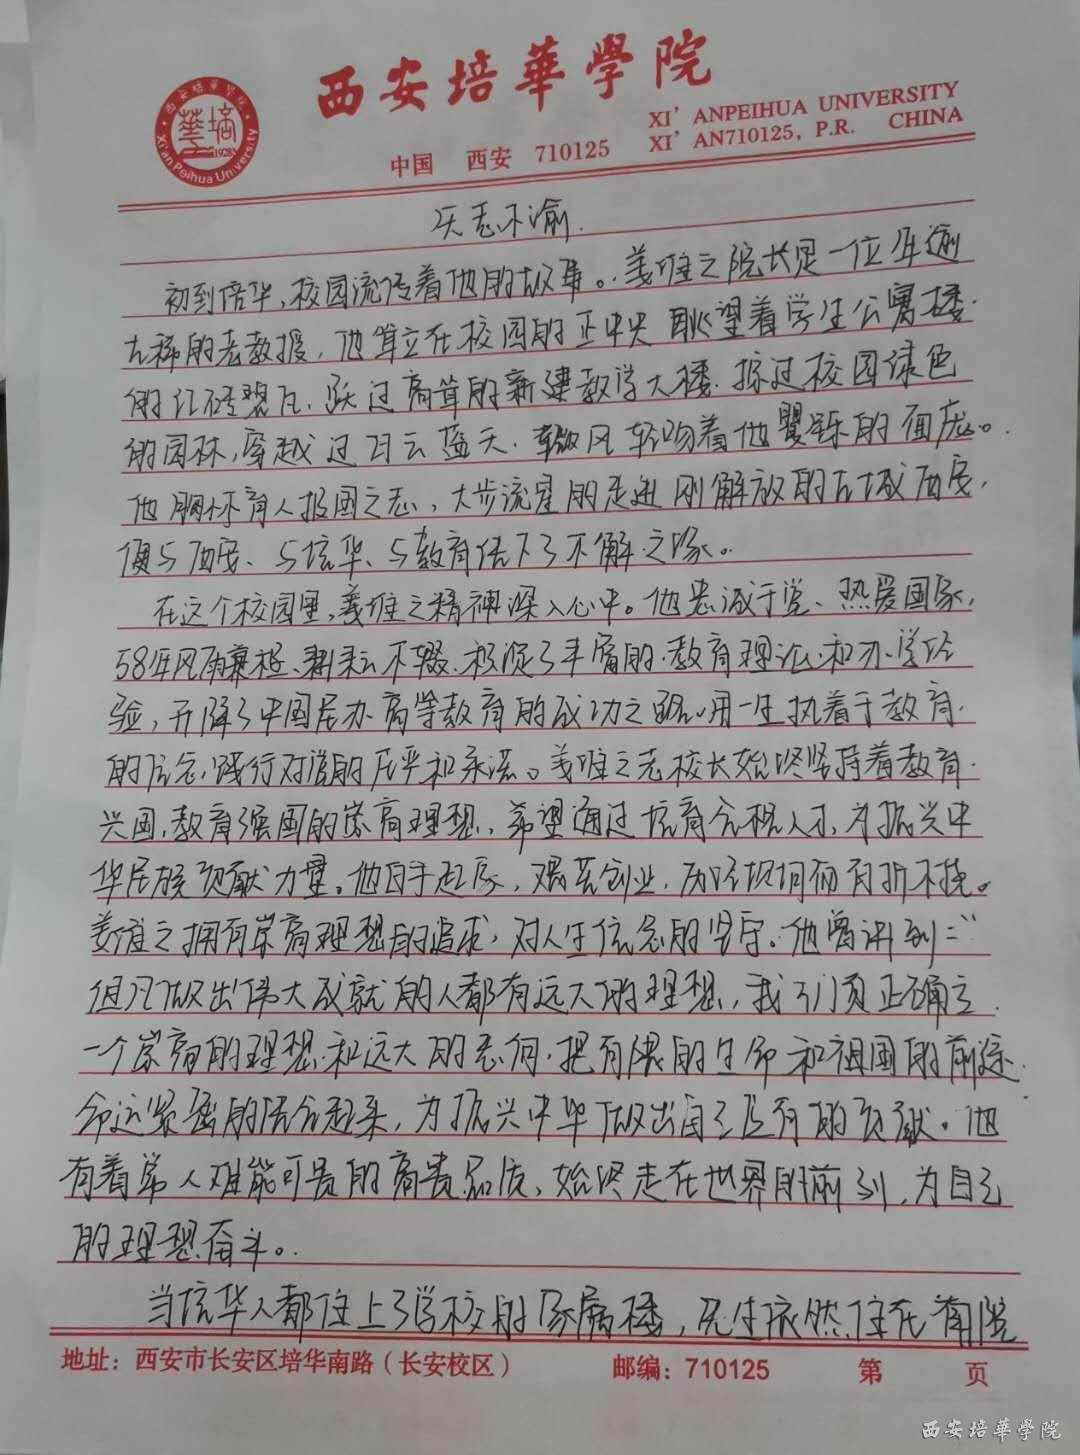 西安培華學院
XI' ANPEIHUA UNIVERSITY
中国 西安 710125 XI' AN710125, P.R. CHINA
西安培华学院
Xi'an Peihua University
1928
矢志不渝.
初到培华,校园流传着他的故事。姜维之院长是一位年逾
古稀的老教授,他耸立在校园的正中央 眺望着学生公寓楼
的红砖碧瓦、跃过高耸的新建教学大楼.掠过校园绿色
的园林,穿越过白云蓝天.微风轻吻着他矍铄的面庞。
他胸怀育人报国之志、大步流星的走进刚解放的古城西安,
便与西安、与培华、与教育结下了不解之缘。
在这个校园里,姜维之精神深入心中。他忠诚于党、热爱国家,
58年风雨兼程、耕耘不辍.积淀了丰富的教育理论和办学经
验,开辟了中国民办高等教育的成功之路.用一生执着于教育
的信念,践行对党的庄严和承诺。姜维之老校长始终坚持着教育
兴国,教育强国的崇高理想,希望通过培育合格人才,为振兴中
华民族贡献力量。他白手起家,艰苦创业,历经坎坷而百折不挠。
姜维之拥有崇高理想的追求,对人生信念的坚守。他曾讲到:“
但凡做出伟大成就的人都有远大的理想,我们须正确立
一个崇高的理想和远大的志向,把有限的生命和祖国的前途
命运紧密的结合起来,为振兴中华做出自己应有的贡献。他
有着常人难能可贵的高贵品质、始终走在世界的前列,为自己
的理想奋斗。
当培华人都住上了学校的家属楼,先生依然住在南院
地址:西安市长安区培华南路(长安校区) 邮编:710125 第 页
西安培華学院